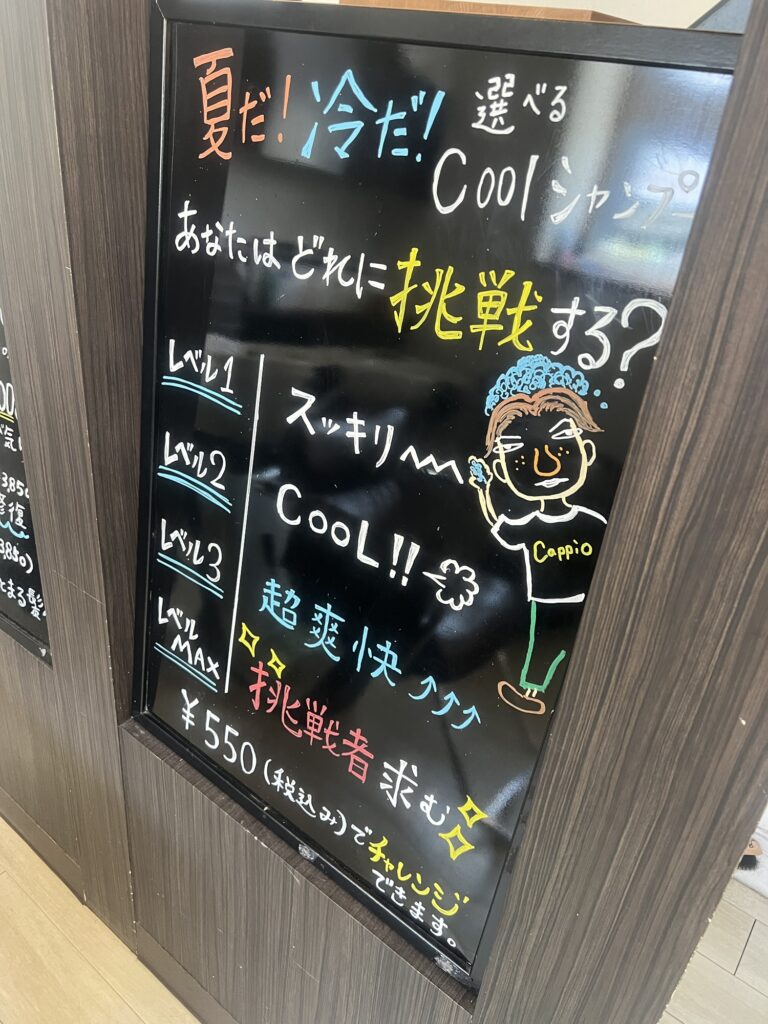 夏だ！冷だ！選べる
Coolシャンプー
あなたはどれに挑戦する？
レベル1 スッキリ〜
レベル2 COOL!!
レベル3 超爽快↑↑↑
レベルMAX 挑戦者求む
¥550(税込み)でチャレンジ
できます。
Cappio
00
気
3,850
修復
3,850)
まる髪